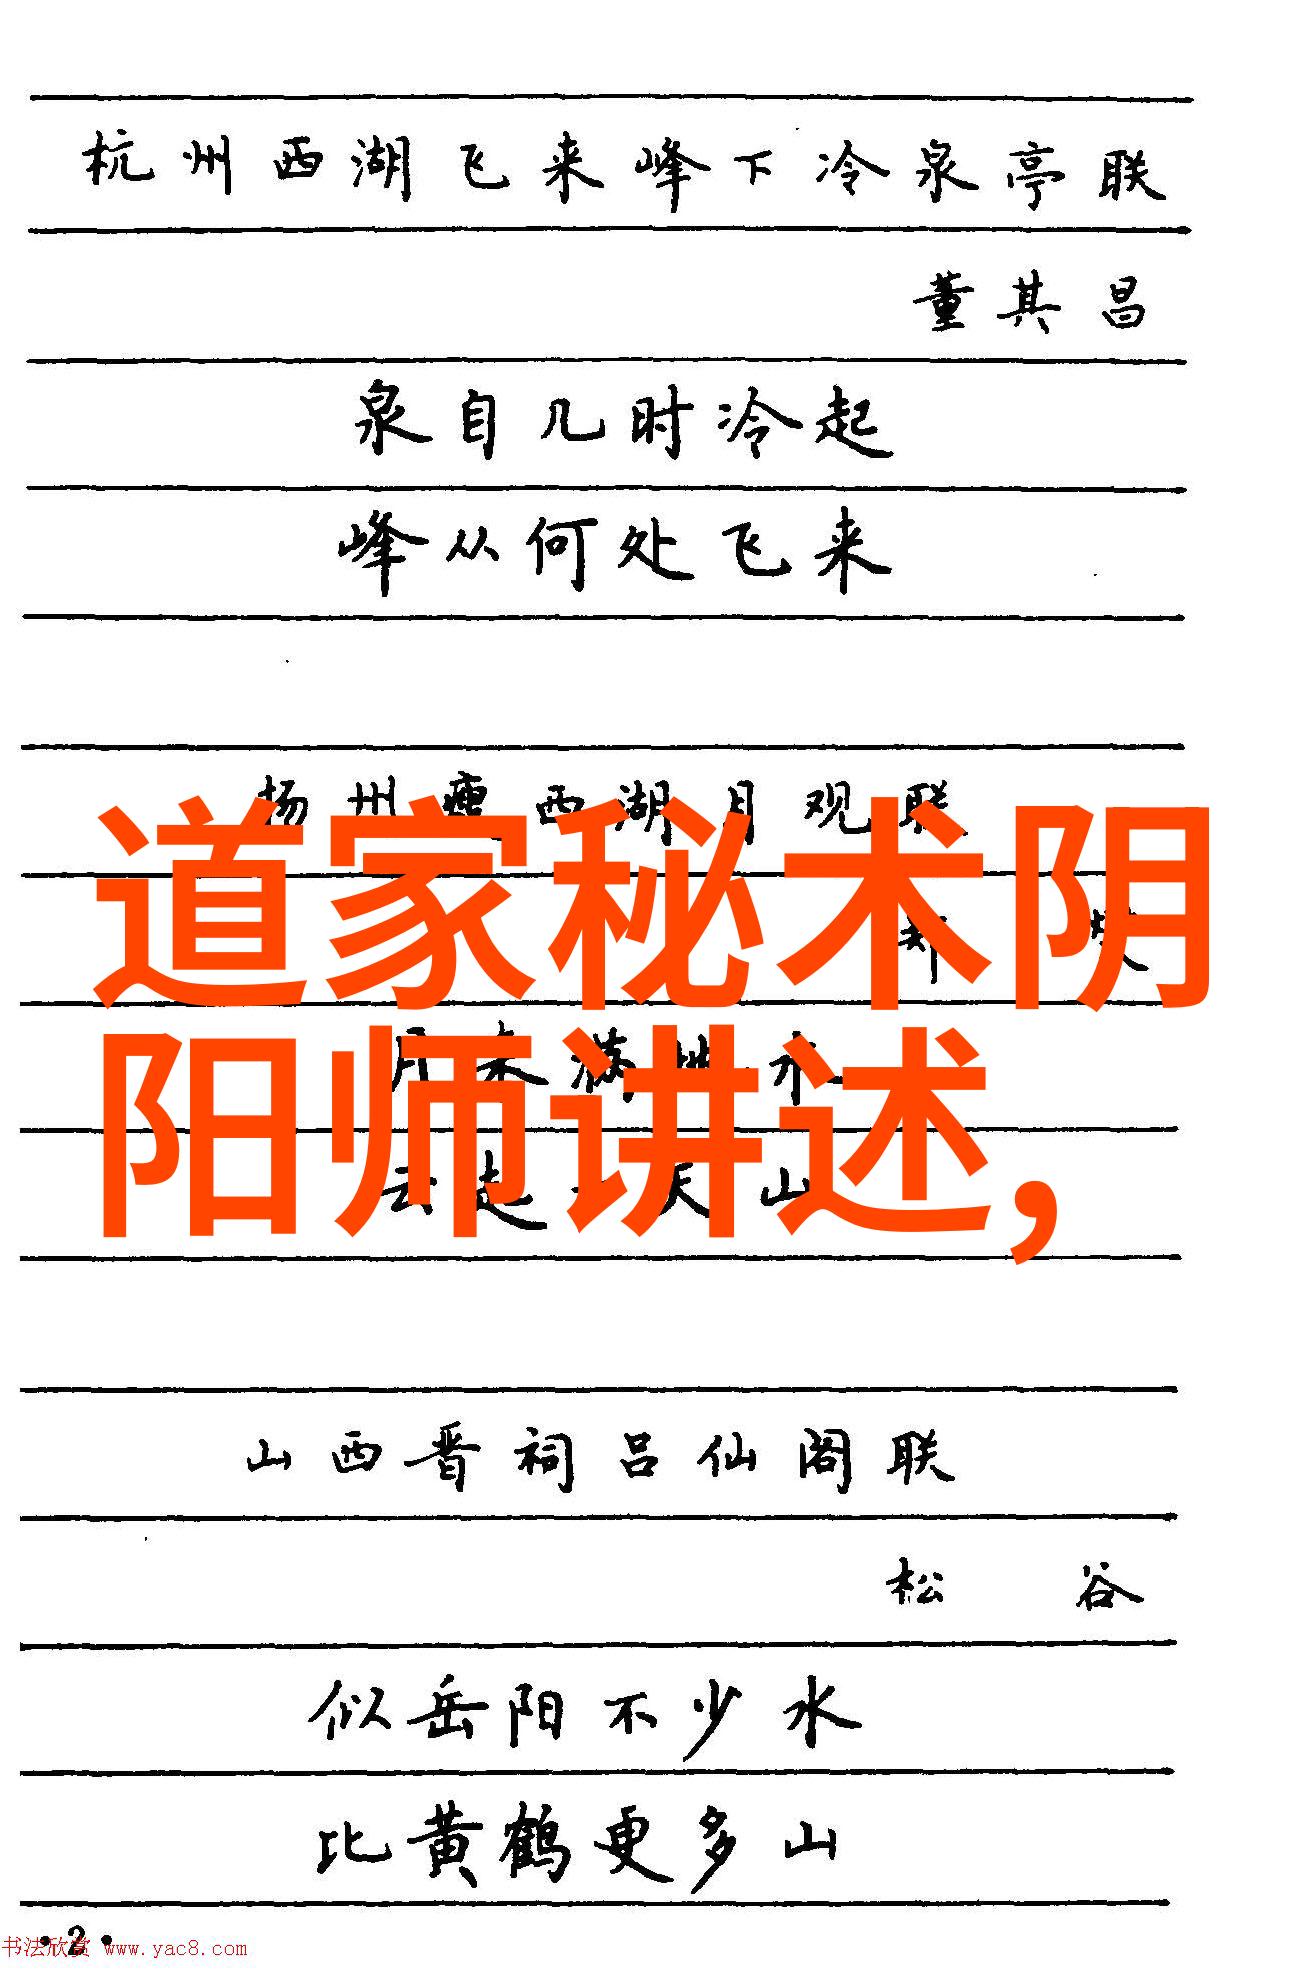 杭州西湖飞来峰下冷泉亭联
董其昌
泉自几时冷起
峰从何处飞来
扬州瘦西湖月观联
道家秘术阴
月来满地水
阳师讲述,
云起一天山
山西晋祠吕仙阁联
松谷
似岳阳不少水
比黄鹤更多山
·2·
书法欣赏 www.yac8.com